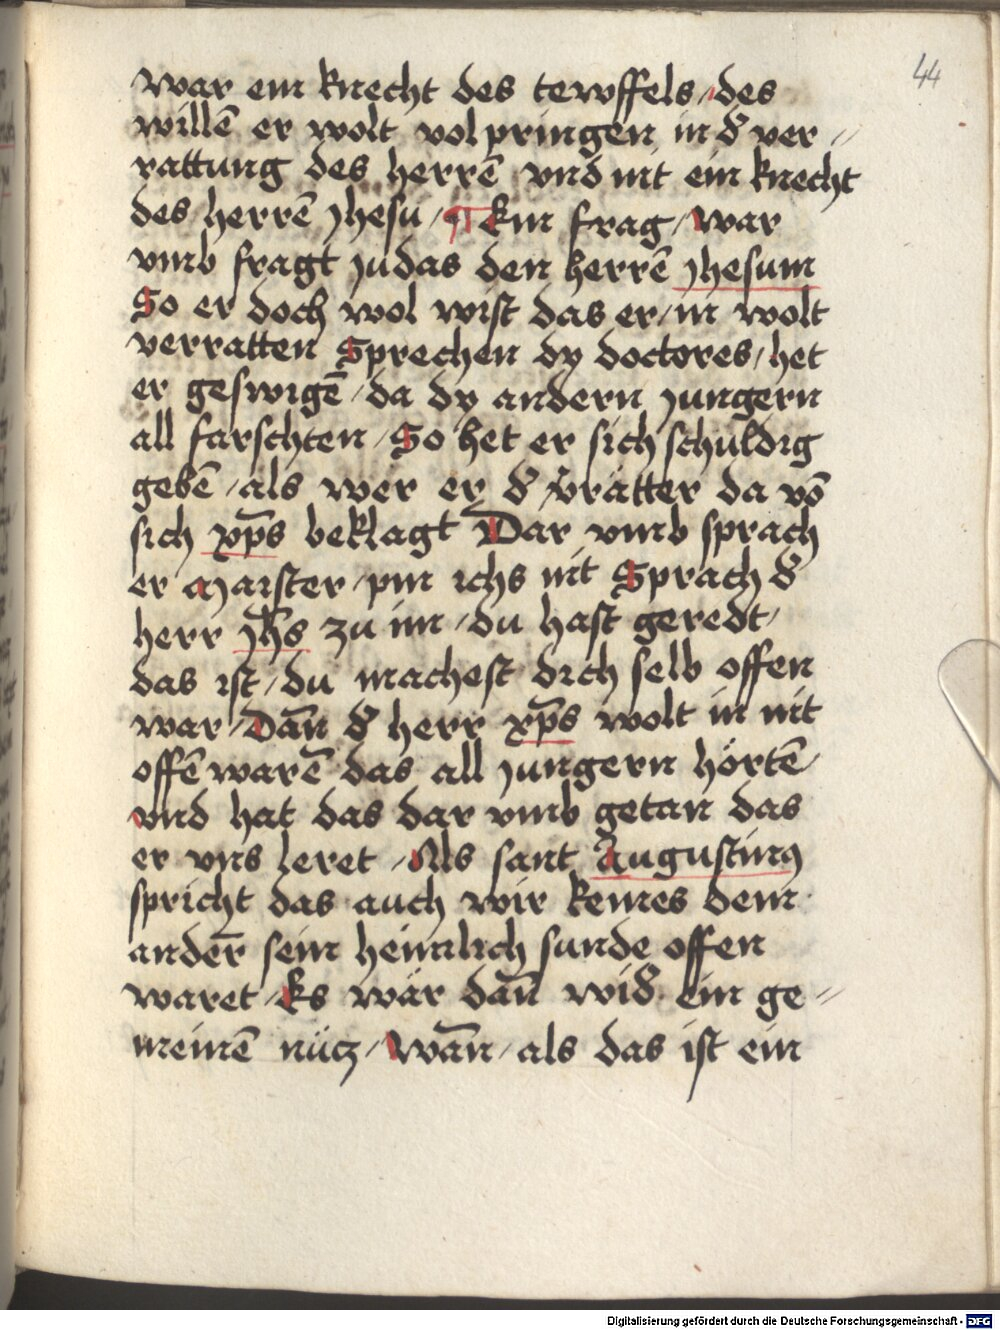 44
war ein knecht des tewffels / des
willē er wolt volpringen in d̄ ver //
rattung des herrē vnd nit ein knecht
des herrē Jhesu / ¶ Ein frag / war
vmb fragt judas den herrē Jhesum
So er doch wol wist das er / in wolt
verratten Sprechen dy doctores / het
er geswigē / da dy andern jungern
all farschten / So het er sich schuldig
gebē / als wer er d̄ v̄rätter da vō
sich xp̄s beklagt Dar vmb sprach
er Maister / pin ichs nit Sprach d̄
herr Jh̄s zu im / du hast geredt /
das ist / du machest dich selb offen
war / Dān d̄ herr xp̄s wolt in nit
offē warē das all jungern hörtē /
vnd hat das dar vmb getan das
er vns leret / Als sant Augustinꝯ
spricht das auch wir keines dem
ander̄ sein heimlich sunde offen
waret / Es wär dan̄ wid̄ ein ge //
meinē nücz / Wān / als das ist ein
Digitalisierung gefördert durch die Deutsche Forschungsgemeinschaft - DFG